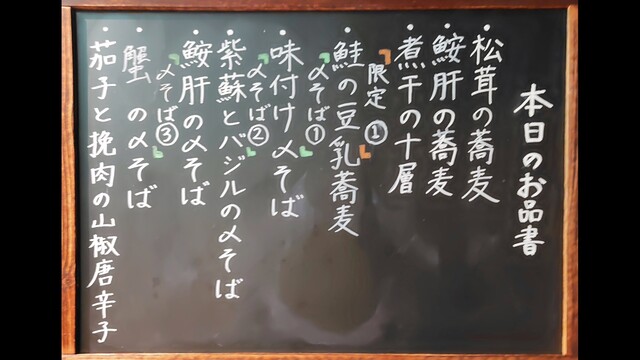 本日のお品書
松茸の蕎麦
鮟肝の蕎麦
煮干の十層
限定①
鮭の豆乳蕎麦
〆そば①
味付け〆そば
〆そば②
紫蘇とバジルの〆そば
鮟肝の〆そば
〆そば③
蟹の〆そば
茄子と挽肉の山椒唐辛子